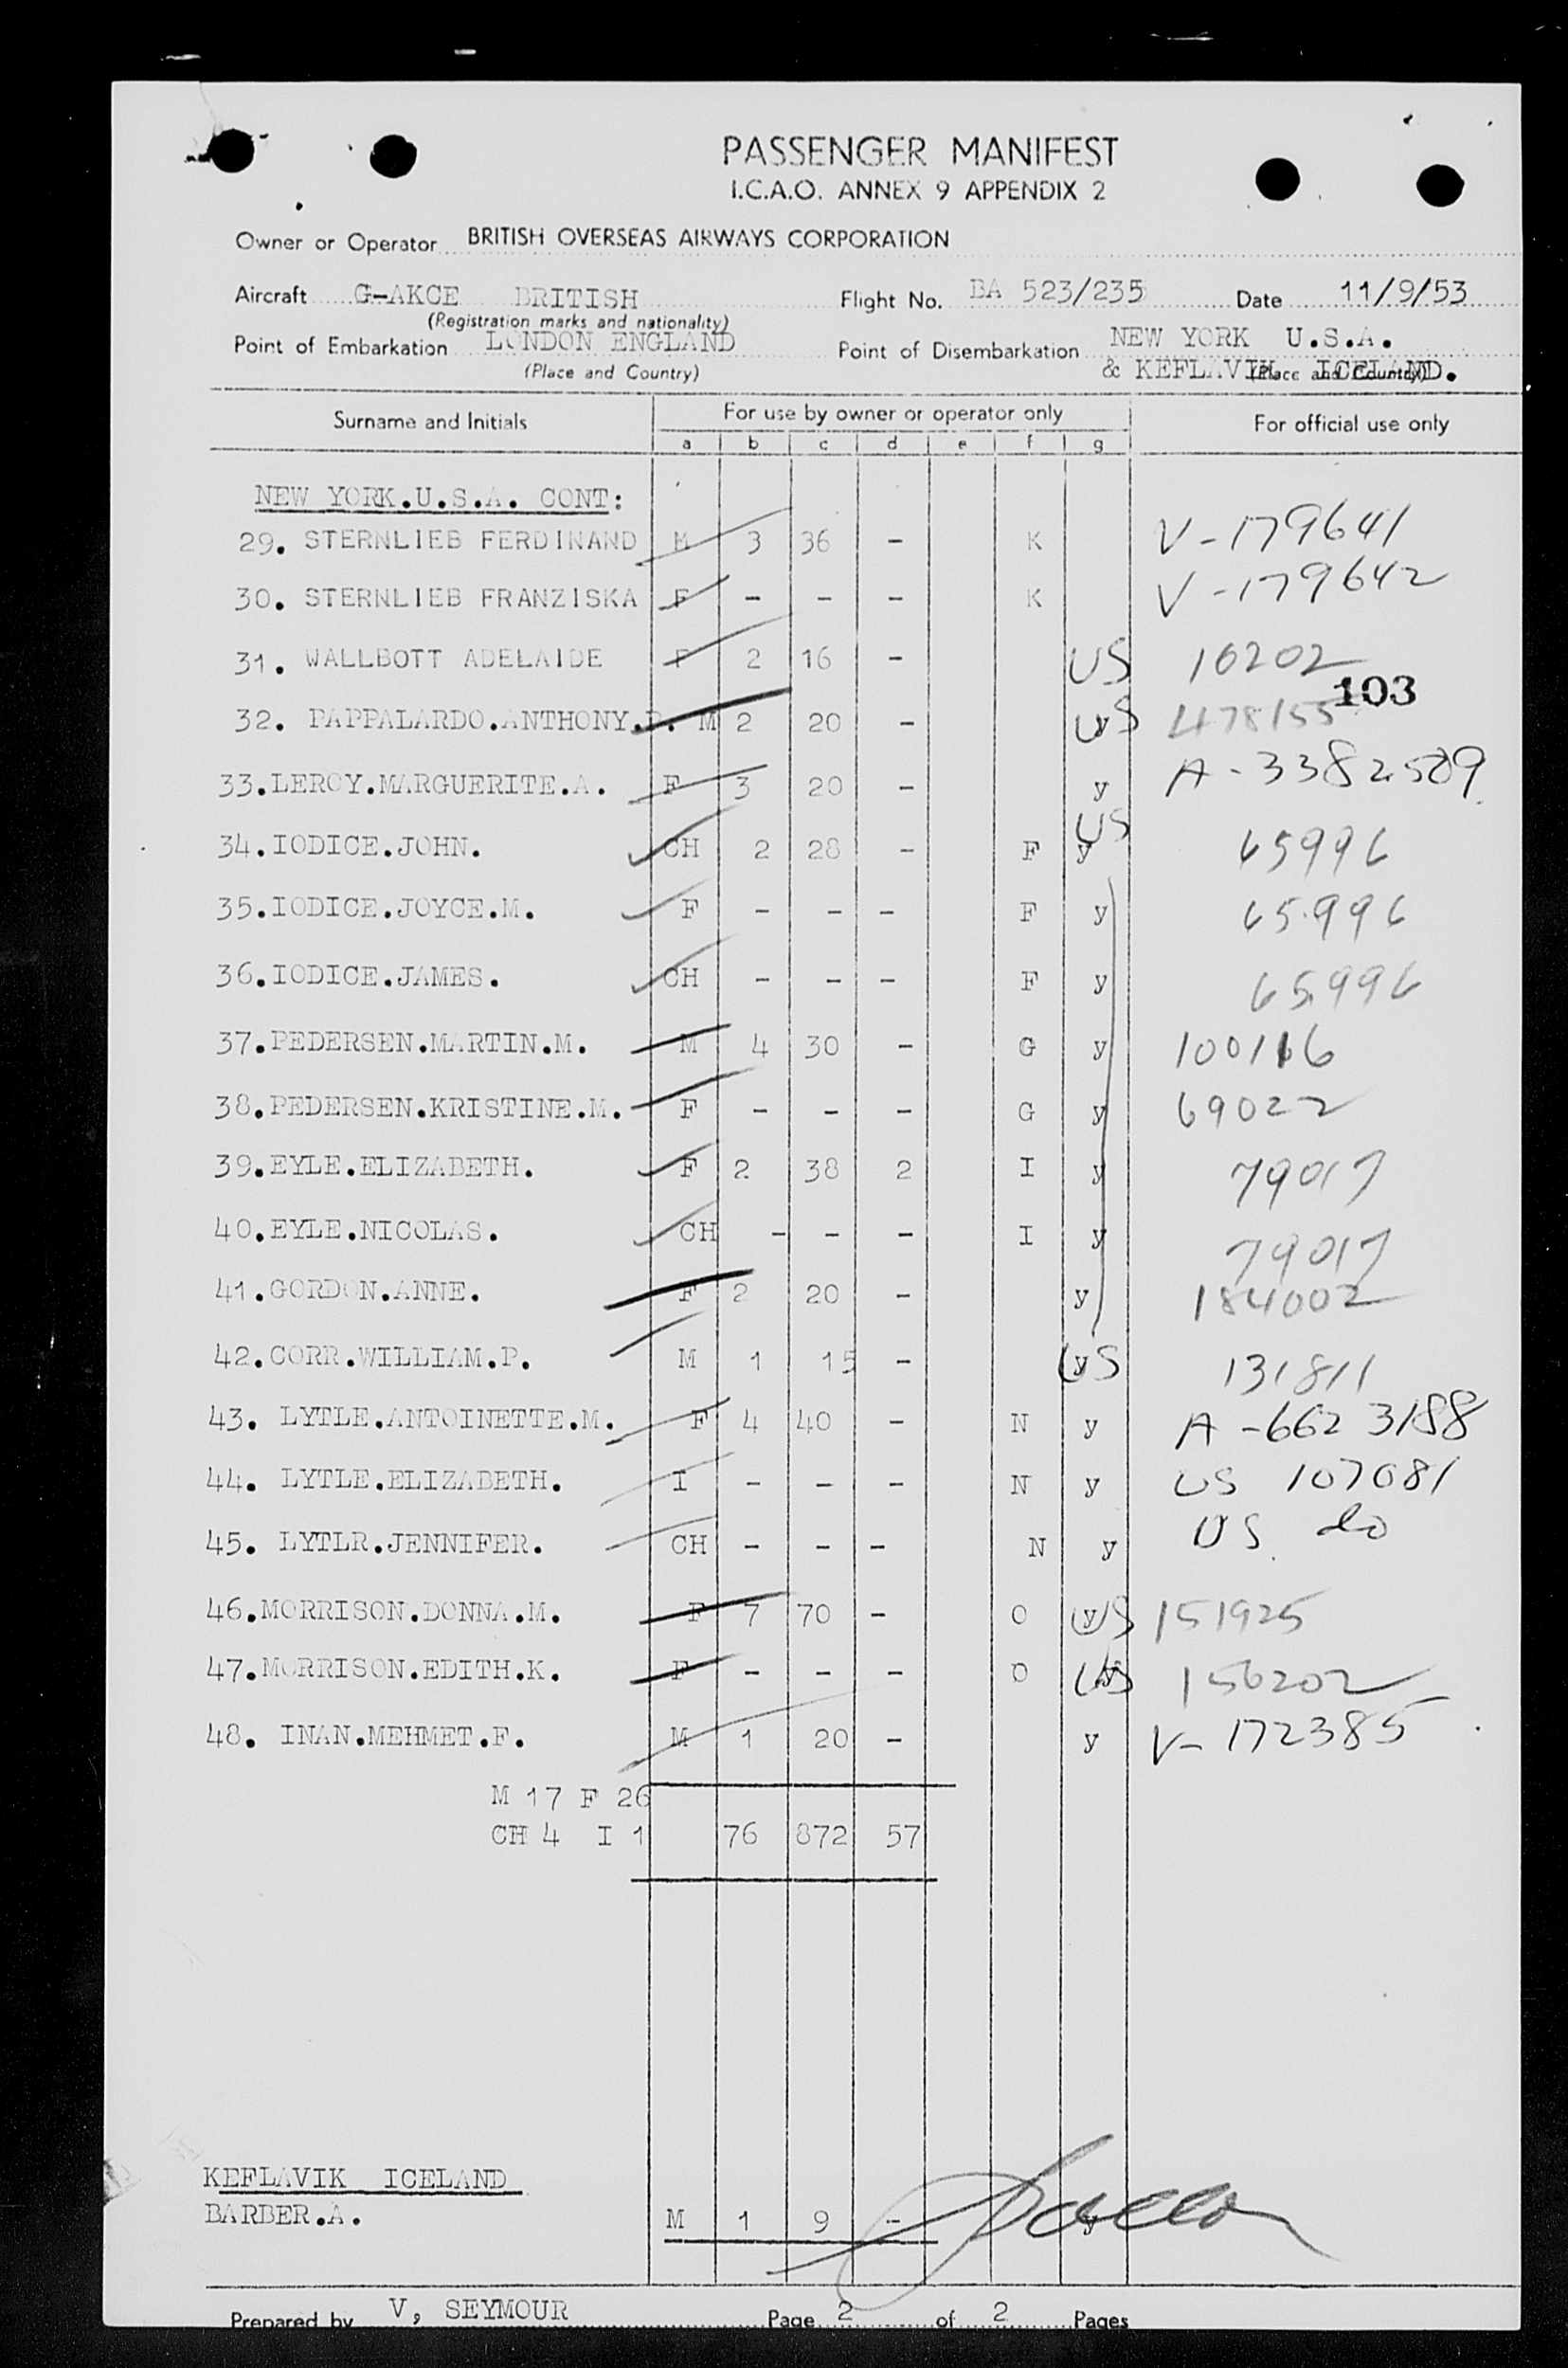 PASSENGER MANIFEST
I.C.A.O. ANNEX 9 APPENDIX 2
Owner or Operator BRITISH OVERSEAS AIRWAYS CORPORATION
Aircraft G-AKCE BRITISH Flight No. BA 523/235 Date 11/9/53
(Registration marks and nationality)
Point of Embarkation LONDON ENGLAND Point of Disembarkation NEW YORK U.S.A.
(Place and Country) & KEFLAVIK ICELAND. (Place and Country)
Surname and Initials For use by owner or operator only For official use only
a b c d e f g
NEW YORK.U.S.A. CONT:
29. STERNLIEB FERDINAND M 3 36 - K V-179641
30. STERNLIEB FRANZISKA F - - - K V-179642
31. WALLBOTT ADELAIDE F 2 16 - US 10202
103
32. PAPPALARDO.ANTHONY. M 2 20 - y US 478155
33.LEROY.MARGUERITE.A. F 3 20 - y A-3382509
34.IODICE.JOHN. CH 2 28 - F y US 65996
35.IODICE.JOYCE.M. F - - - F y 65996
36.IODICE.JAMES. CH - - - F y 65996
37.PEDERSEN.MARTIN.M. M 4 30 - G y 100116
38.PEDERSEN.KRISTINE.M. F - - - G y 69022
39.EYLE.ELIZABETH. F 2 38 2 I y 79017
40.EYLE.NICOLAS. CH - - - I y 79017
41.GORDON.ANNE. F 2 20 - y 184002
42.CORR.WILLIAM.P. M 1 15 - y US 131811
43. LYTLE.ANTOINETTE.M. F 4 40 - N y A-6623188
44. LYTLE.ELIZABETH. I - - - N y US 107081
45. LYTLR.JENNIFER. CH - - - N y US do
46.MORRISON.DONNA.M. F 7 70 - O y US 151925
47.MORRISON.EDITH.K. F - - - O y US 156202
48. INAN.MEHMET.F. M 1 20 - y V-172385
M 17 F 26
CH 4 I 1 76 872 57
KEFLAVIK ICELAND
BARBER.A. M 1 9 - y
Prepared by V, SEYMOUR Page 2 of 2 Pages